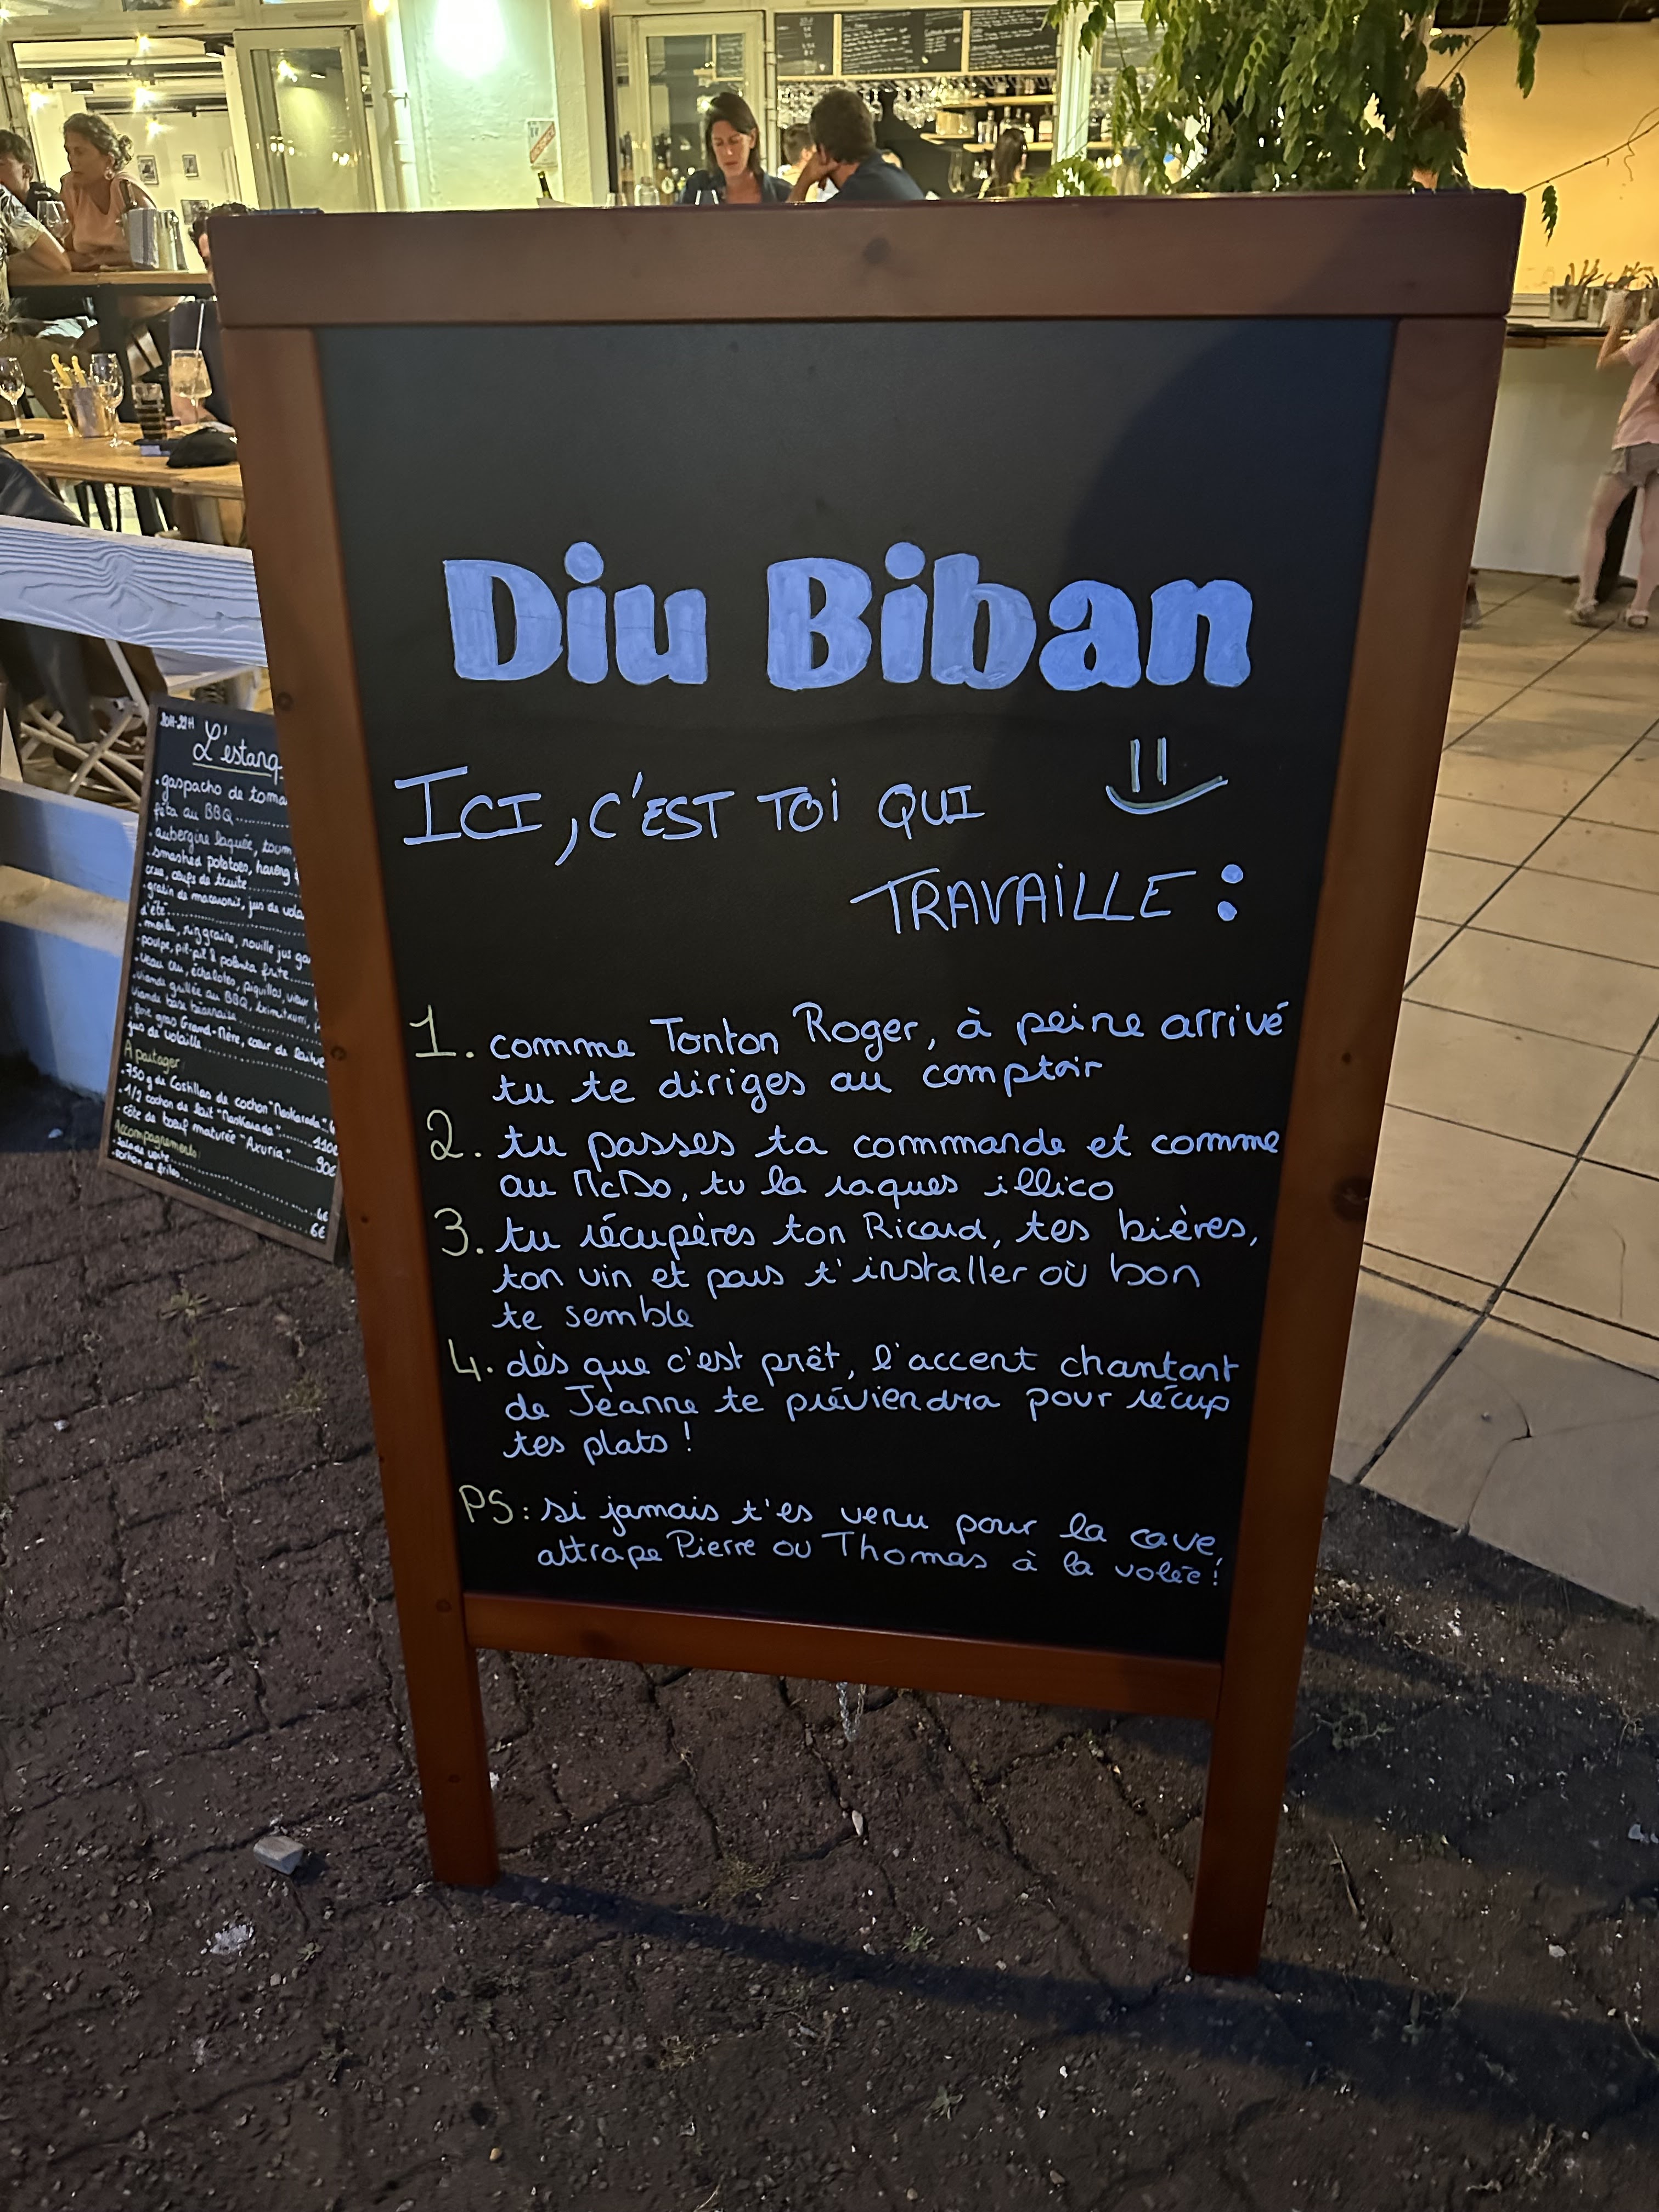 Diu Biban
ICI, C'EST TOi QUI
TRAVAiLLE :
1. comme Tonton Roger, à peine arrivé
tu te diriges au comptoir
2. tu passes ta commande et comme
au McDo, tu la raques illico
3. tu récupères ton Ricard, tes bières,
ton vin et pars t'installer où bon
te semble
4. dès que c'est prêt, l'accent chantant
de Jeanne te préviendra pour récup
tes plats !
PS : si jamais t'es venu pour la cave,
attrape Pierre ou Thomas à la volée !
L'estanq
. gaspacho de toma
féta au BBQ
. aubergine laquée, toum
. smashed potatoes, hareng
crue, oeufs de truite
. gratin de macaronis, jus de vola
d'été
. merlu, riz graine, rouille jus ga
. poulpe, pil-pil & polenta frite
. veau cru, échalotes, piquillos, vieux
. viande grillée au BBQ, chimichurri,
. foie gras Grand-Mère, cœur de laitue
jus de volaille
A partager :
. 750 g de Costillas de cochon "Maskarada"
. 1/2 cochon de lait "Maskarada" 110€
. côte de boeuf maturée "Axuria" 90€
Accompagnements :
. salade verte 6€
. portion de frites 6€